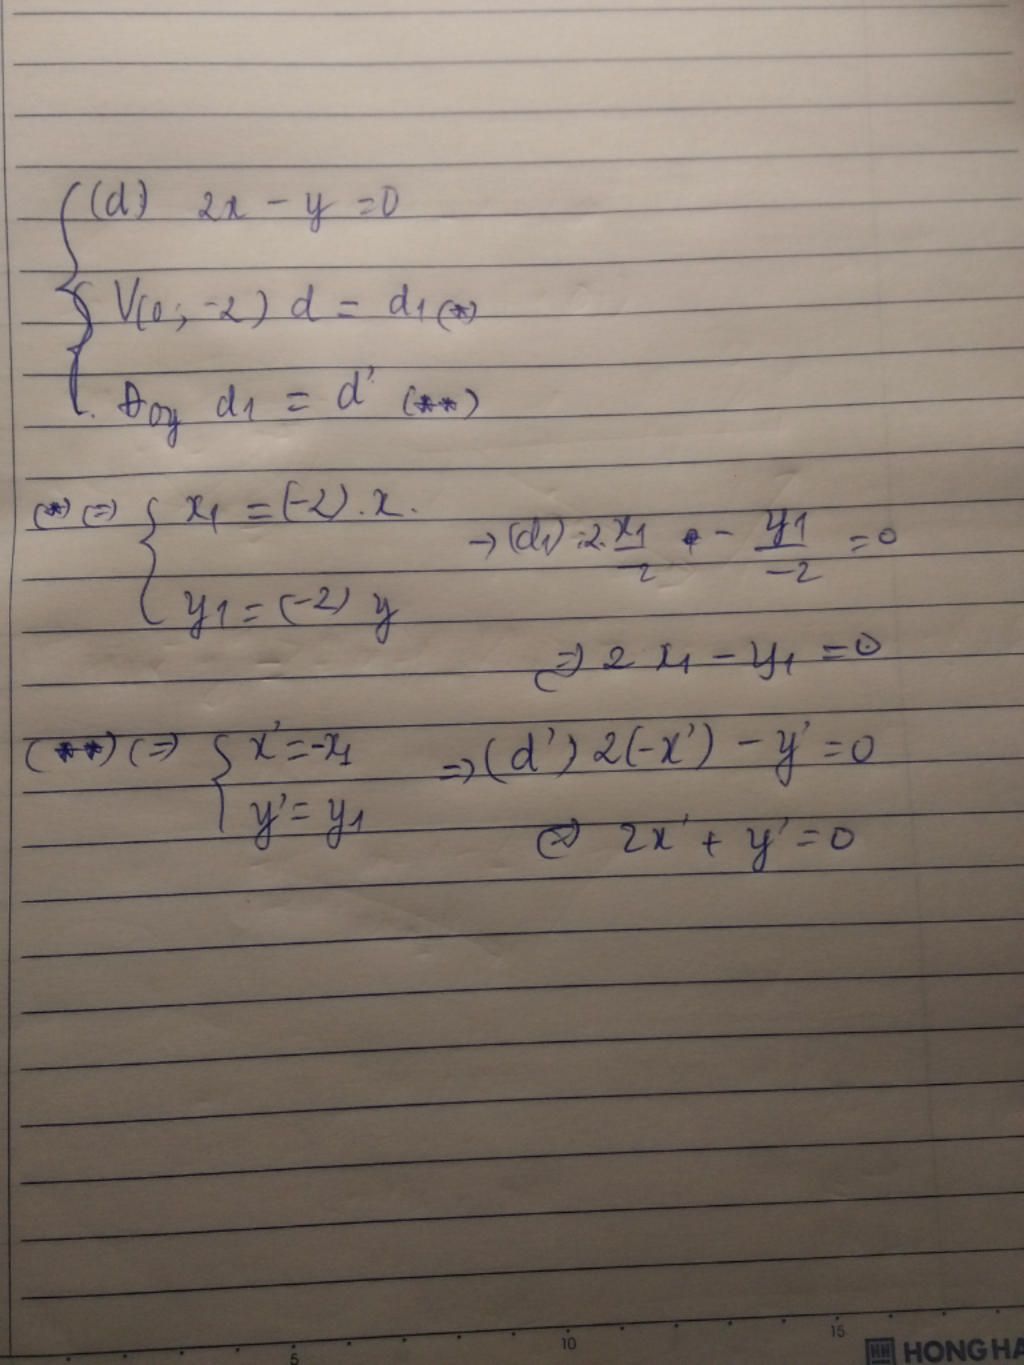 (d) 2x - y = 0
V(0; -2) d = d1 (*)
Đoy d1 = d' (**)
(*) (=) { x1 = (-2) . x.
y1 = (-2) y
→ (d1) : 2. x1/2 - y1/-2 = 0
(=) 2 x1 - y1 = 0
(**) (=) { x' = -x1
y' = y1
=> (d') 2(-x') - y' = 0
(=) 2x' + y' = 0
5 10 15
HH HONG HA